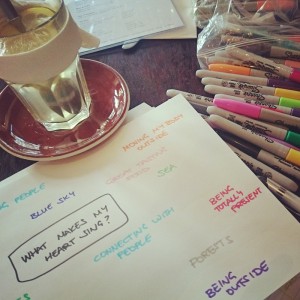 MOVING MY BODY
OUTSIDE
PEOPLE
BLUE SKY
SEA
WHAT MAKES MY
HEART SING?
CONNECTING WITH
PEOPLE
BEING
TOTALLY
PRESENT
FORESTS
BEING OUTSIDE